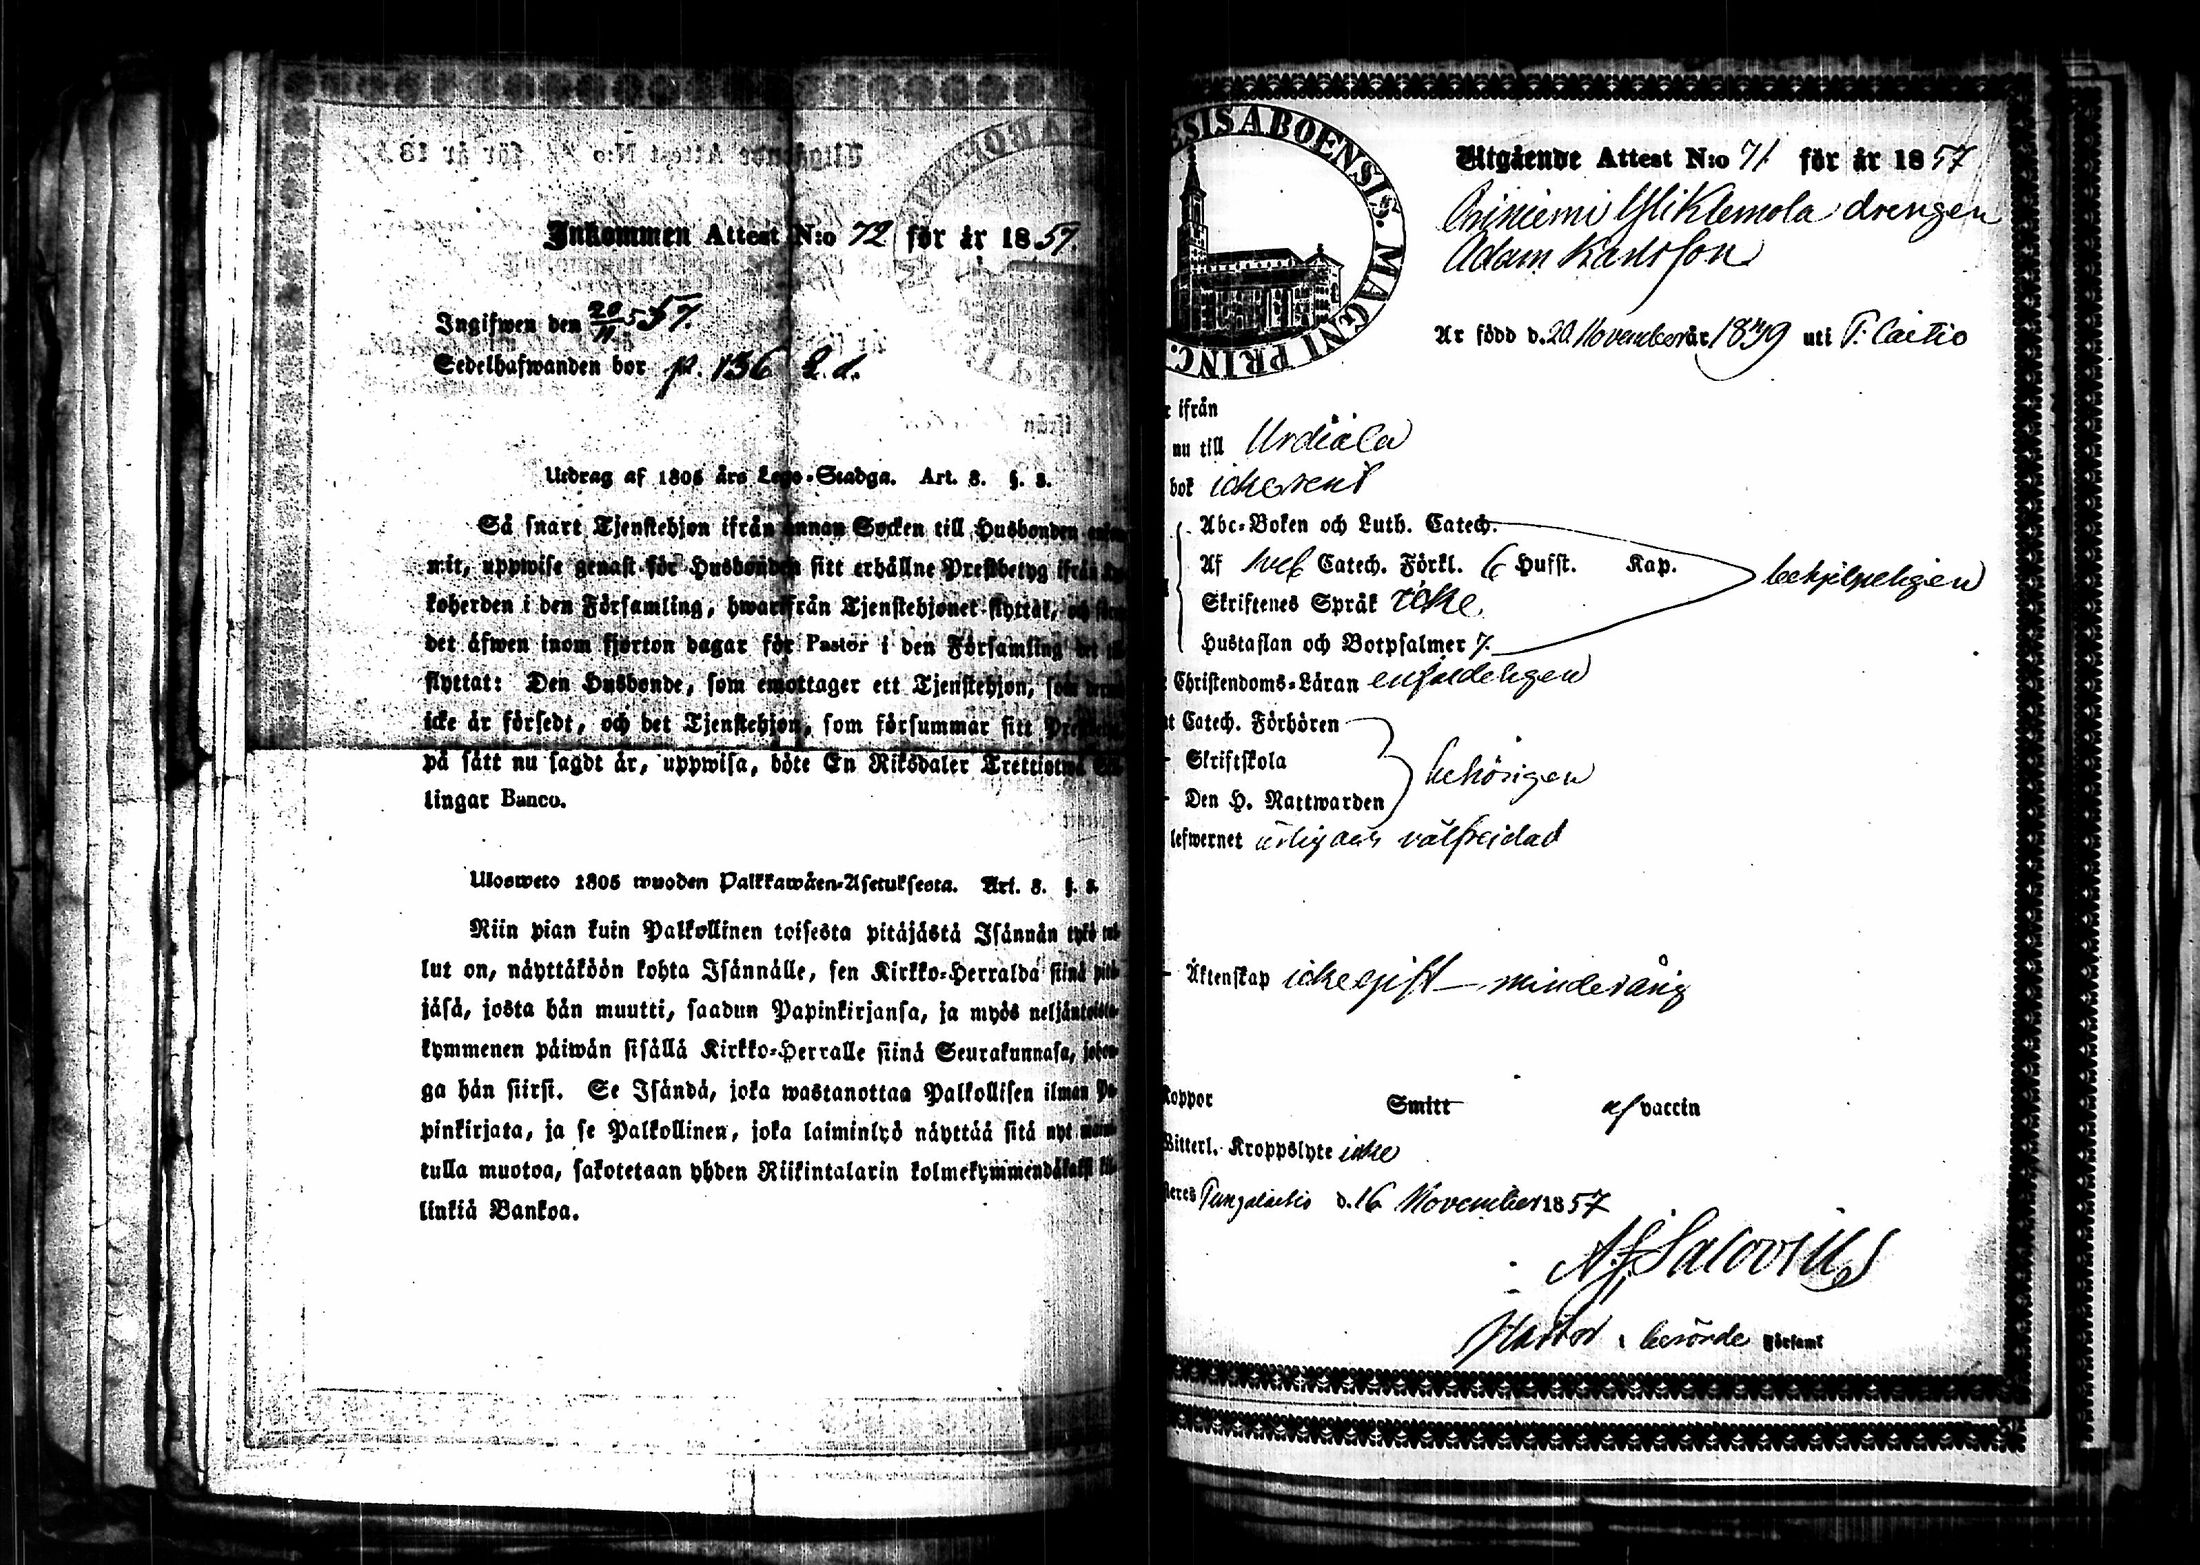 Inkommen Attest N:o 72 för år 1857
Ingifwen den 20/11 57.
Sedelhafwanden bor p. 136 2.d.
Utdrag af 1805 års Lego-Stadga. Art. 8. §. 8.
Så snart Tjenstehjon ifrån annan Socken till Husbonden
mit, uppwise genast för Husbonden sitt erhållne Prestbetyg ifrån
koherden i den Församling, hwarifrån Tjenstehjonet flyttat, och
det äfwen inom fjorton dagar för Pastor i den Församling det
flyttat: Den Husbonde, som emottager ett Tjenstehjon, som
icke är försedt, och det Tjenstehjon, som försummar sitt
på sätt nu sagdt är, uppwisa, böte En Riksdaler Trettiotwå
lingar Banco.
Ulosweto 1805 wuoden Palkkawäen-Asetuksesta. Art. 8. §. 8.
Niin pian kuin Palkollinen toisesta pitäjästä Isännän tykö
lut on, näyttäköön kohta Isännälle, sen Kirkko-Herralda siinä pitä-
jäsä, josta hän muutti, saadun Papinkirjansa, ja myös neljäntoista-
kymmenen päiwän sisällä Kirkko-Herralle siinä Seurakunnasa, johon-
ga hän siirsi. Se Isändä, joka wastanottaa Palkollisen ilman Pa-
pinkirjata, ja se Palkollinen, joka laiminlyö näyttää sitä nyt
tulla muotoa, sakotetaan yhden Riikintalarin kolmekymmendäkaksi
linkiä Bankoa.
ESIS ABOENSIS. MAGNI PRINC.
Utgående Attest N:o 71 för år 1857
Öriniemi Yli Klemola drengen
Adam Karlsson
Är född d. 20 November år 1839 uti T. Laitio
ifrån
nu till Urdiala
bok icke rent
Abc-Boken och Luth. Catech.
Af Catech. Förkl. 6 Hufst. Kap. behjelpeligen
Skriftenes Språk icke
Hustaflan och Botpsalmer 7.
Christendoms-Läran enfaldeligen
Catech. Förhören
Skriftskola behörigen
Den H. Nattwarden
lefwernet ärlig och välfreidad
Äktenskap icke gift – minderårig
koppor Smitt af vaccin
Witterl. Kroppslyte icke
d. 16 November 1857
Pastor i berörde Församl